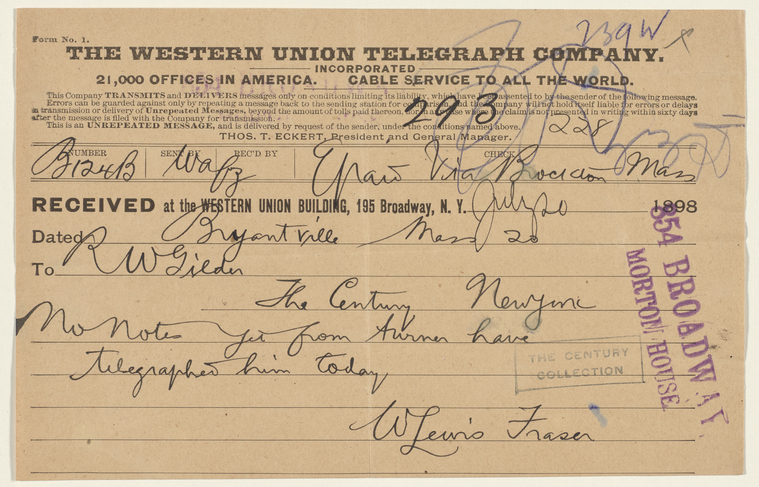 239 W x
Form No. 1.
THE WESTERN UNION TELEGRAPH COMPANY.
INCORPORATED
21,000 OFFICES IN AMERICA. CABLE SERVICE TO ALL THE WORLD.
This Company TRANSMITS and DELIVERS messages only on conditions limiting its liability, which have been assented to by the sender of the following message.
Errors can be guarded against only by repeating a message back to the sending station for comparison, and the Company will not hold itself liable for errors or delays
in transmission or delivery of Unrepeated Messages, beyond the amount of tolls paid thereon, nor in any case where the claim is not presented in writing within sixty days
after the message is filed with the Company for transmission.
This is an UNREPEATED MESSAGE, and is delivered by request of the sender, under the conditions named above.
THOS. T. ECKERT, President and General Manager.
293
228
NUMBER SENT BY REC'D BY CHECK
B124B Wa Via Brockton Mass
RECEIVED at the WESTERN UNION BUILDING, 195 Broadway, N. Y. July 20 1898
Dated Bryantville Mass 20
To R W Gilder
The Century New York
No notes yet from turner have
telegraphed him today
W Lewis Fraser
THE CENTURY
COLLECTION
854 BROADWAY
MORTON HOUSE.